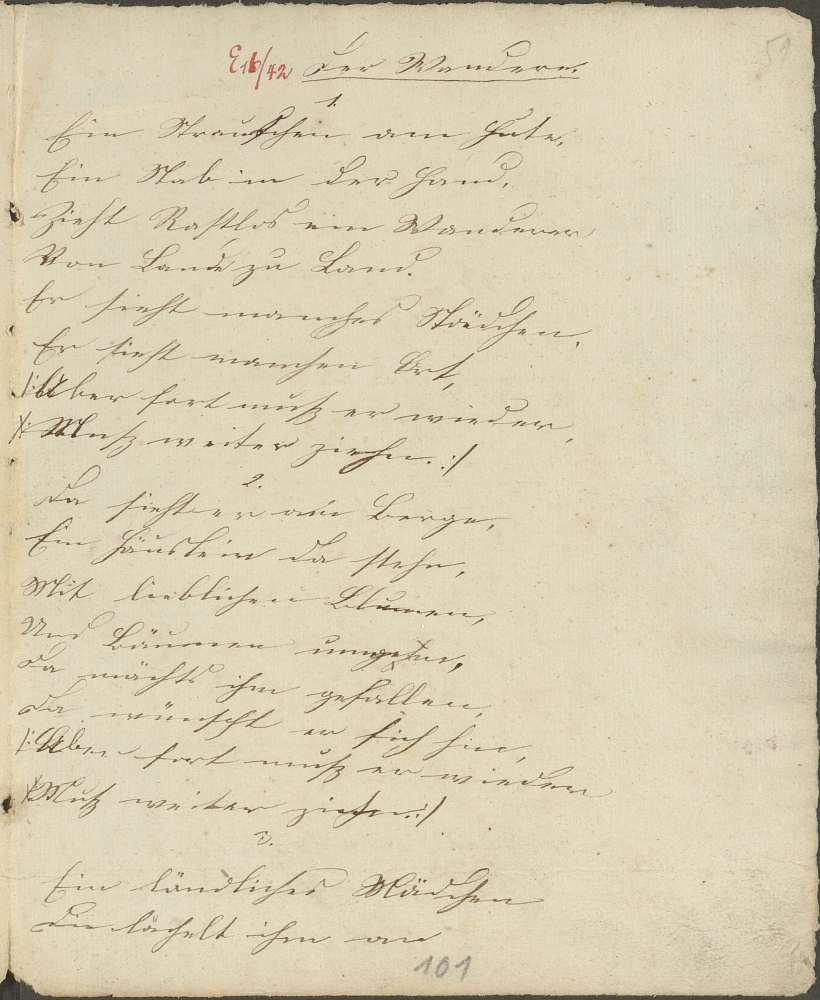 E16/42 Der Wanderer. 59
1.
Ein Strauschen am Hute,
Ein Stab in der Hand,
Zieht Rastlos ein Wanderer
Von Land zu Land.
Er sieht manches Städchen,
Er sieht manchen Ort,
/: Aber fort muß er wieder,
/: Muß weiter ziehn. :/
2.
Da sieht er am Berge,
Ein Häuslein da stehn,
Mit lieblichen Blumen,
Und Bäumen umgehn,
Da möchts ihm gefallen,
Da wünscht er sich hin,
/: Aber fort muß er wieder
/: Muß weiter ziehn. :/
3.
Ein ländliches Mädchen
Die lächelt ihm an
101